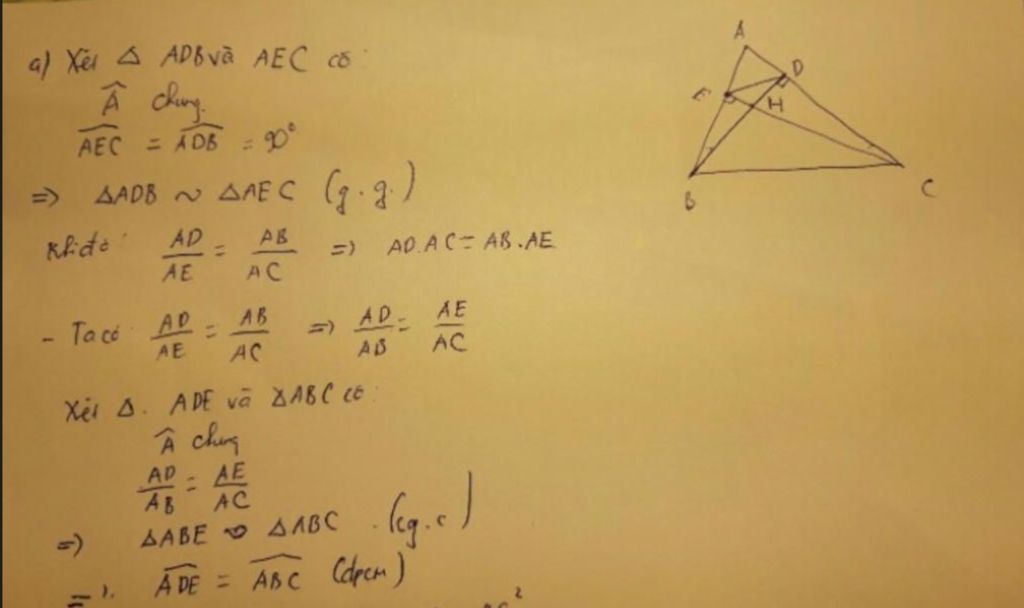 a) Xét Δ ADB và AEC có:
Â chung.
AEC = ADB = 90°
=> ΔADB ~ ΔAEC (g.g.)
Khi đó: AD/AE = AB/AC => AD.AC = AB.AE
- Ta có: AD/AE = AB/AC => AD/AB = AE/AC
Xét Δ. ADE và ΔABC có:
Â chung
AD/AB = AE/AC
=> ΔABE ~ ΔABC (cg.c)
=> ADE = ABC (đpcm)
A
D
E
H
B
C